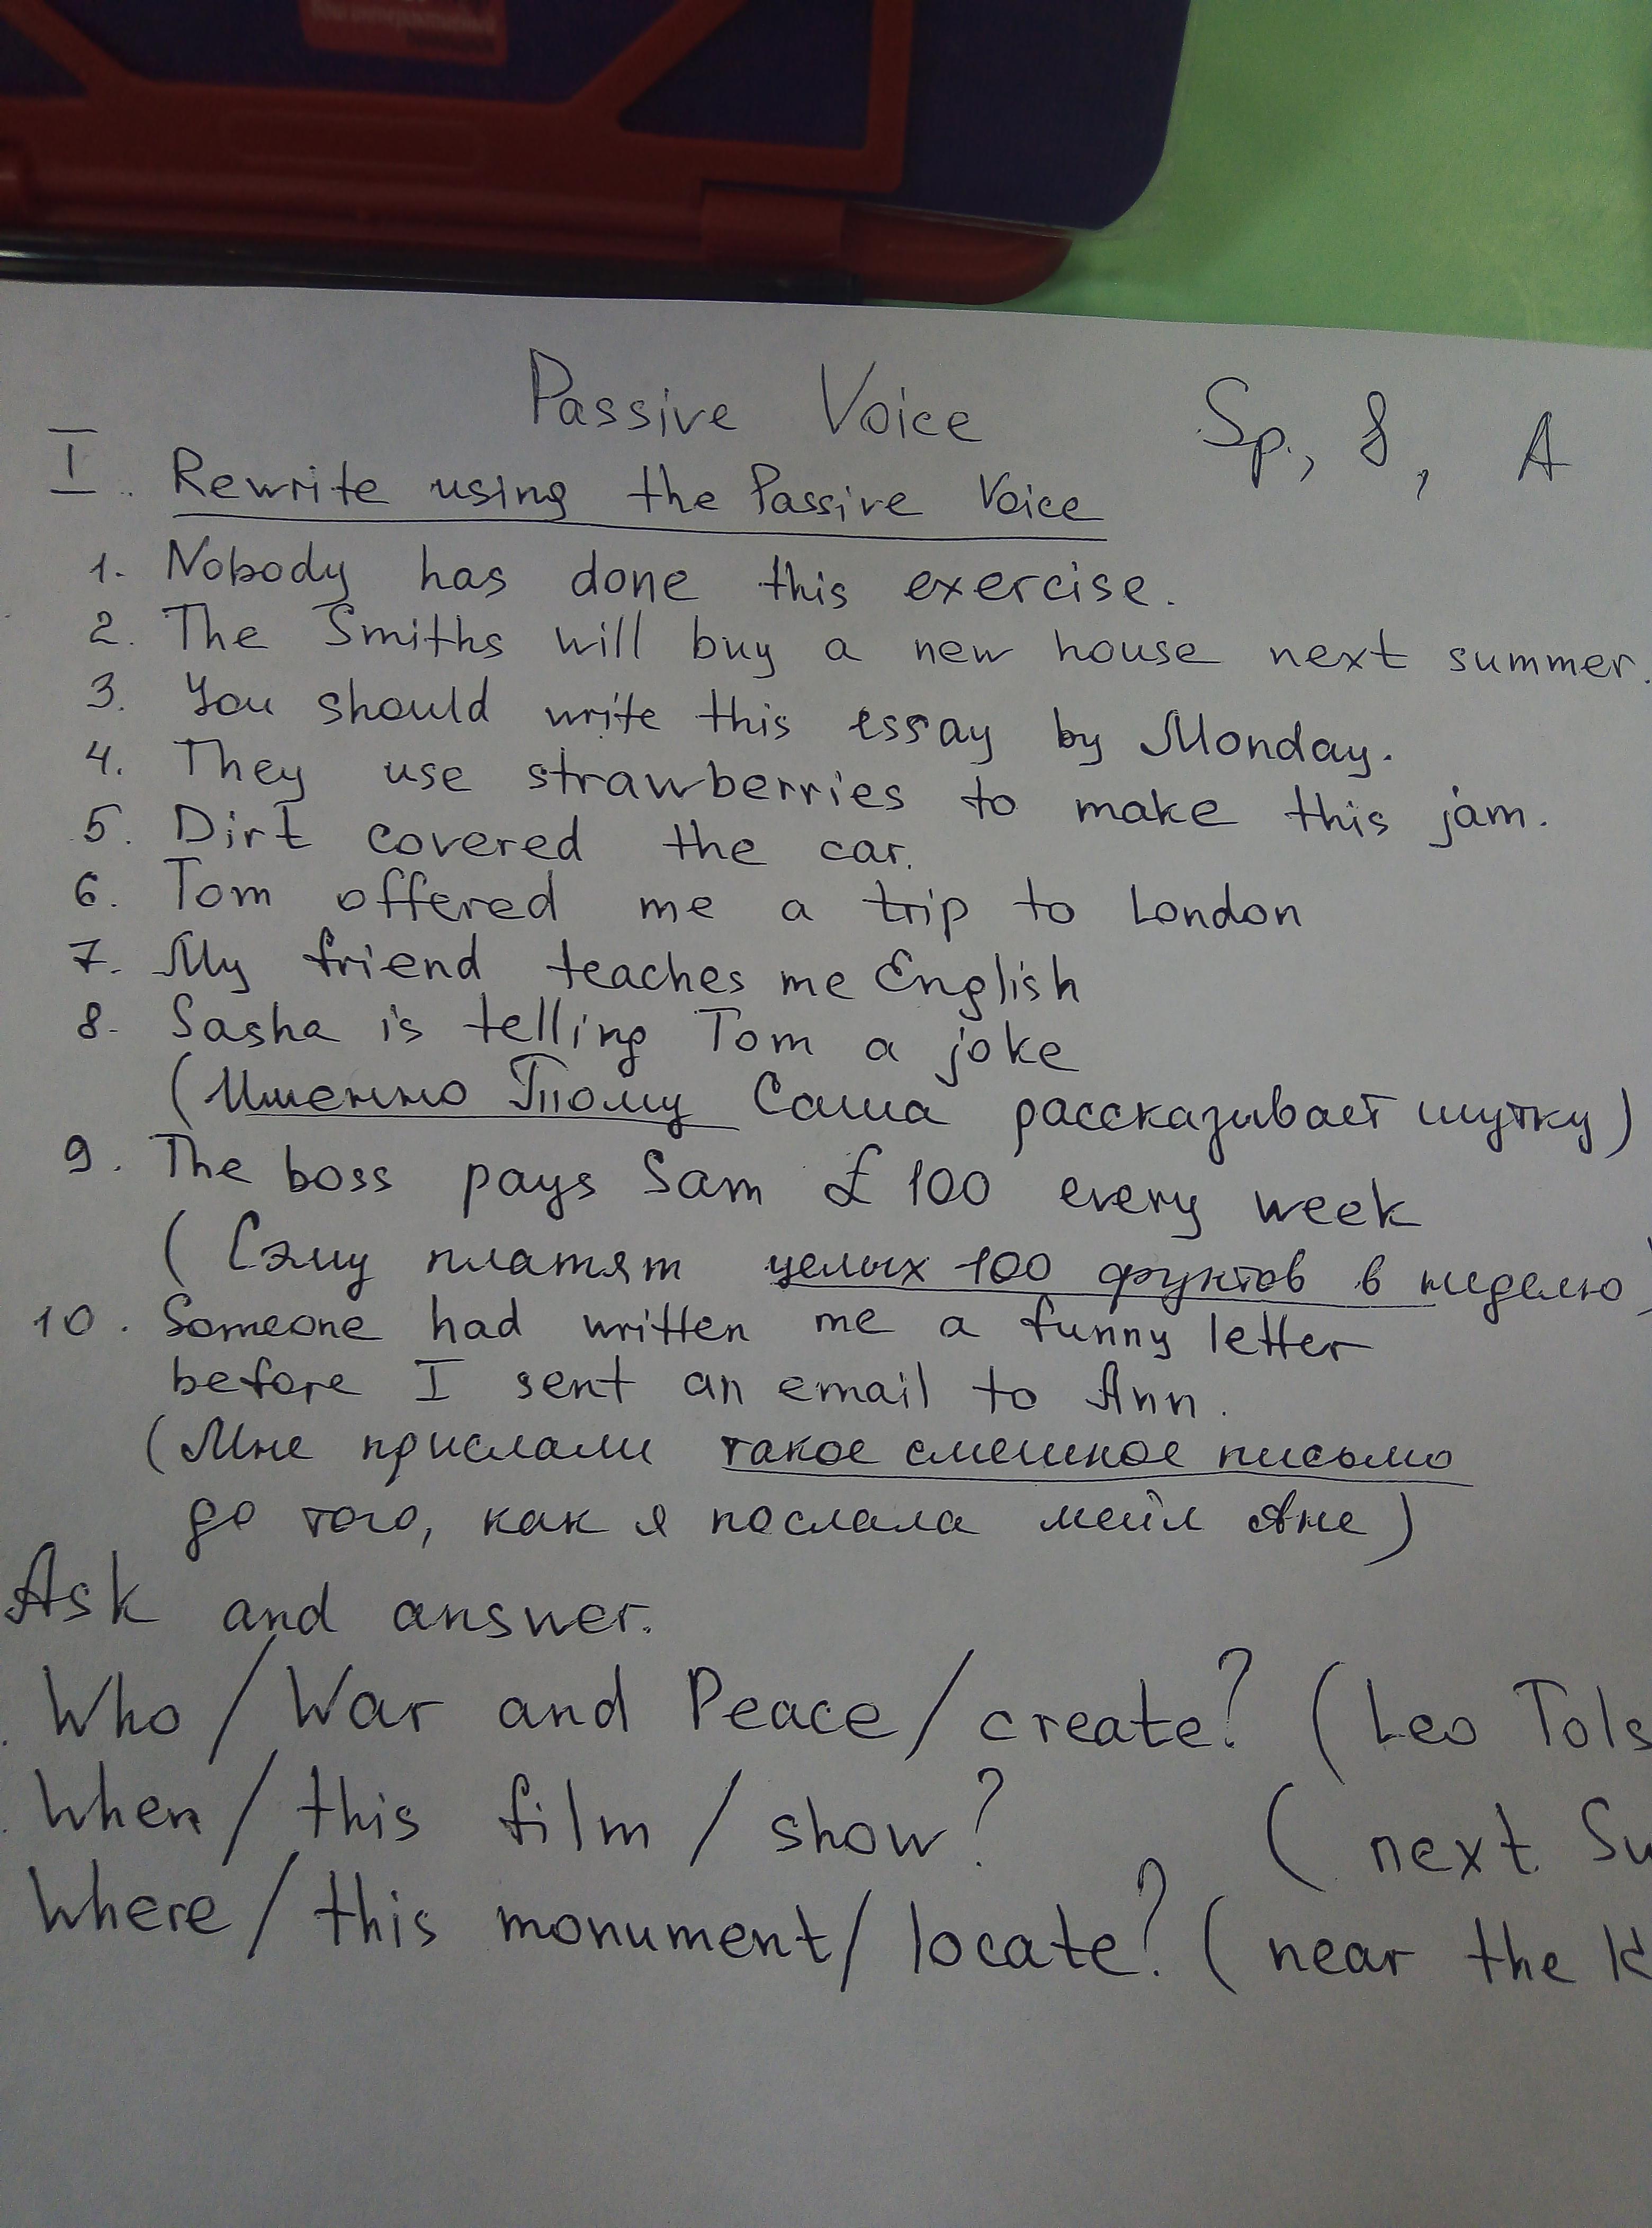 Passive Voice Sp., 8, A
I. Rewrite using the Passive Voice
1. Nobody has done this exercise.
2. The Smiths will buy a new house next summer.
3. You should write this essay by Monday.
4. They use strawberries to make this jam.
5. Dirt covered the car.
6. Tom offered me a trip to London
7. My friend teaches me English
8. Sasha is telling Tom a joke
(Именно Тому Саша рассказывает шутку)
9. The boss pays Sam £100 every week
(Сэму платят целых 100 фунтов в неделю)
10. Someone had written me a funny letter
before I sent an email to Ann.
(Мне прислали такое смешное письмо
до того, как я послала мейл Ане)
Ask and answer.
Who / War and Peace / create? (Leo Tols
When / this film / show? ( next Su
Where / this monument / locate? ( near the K